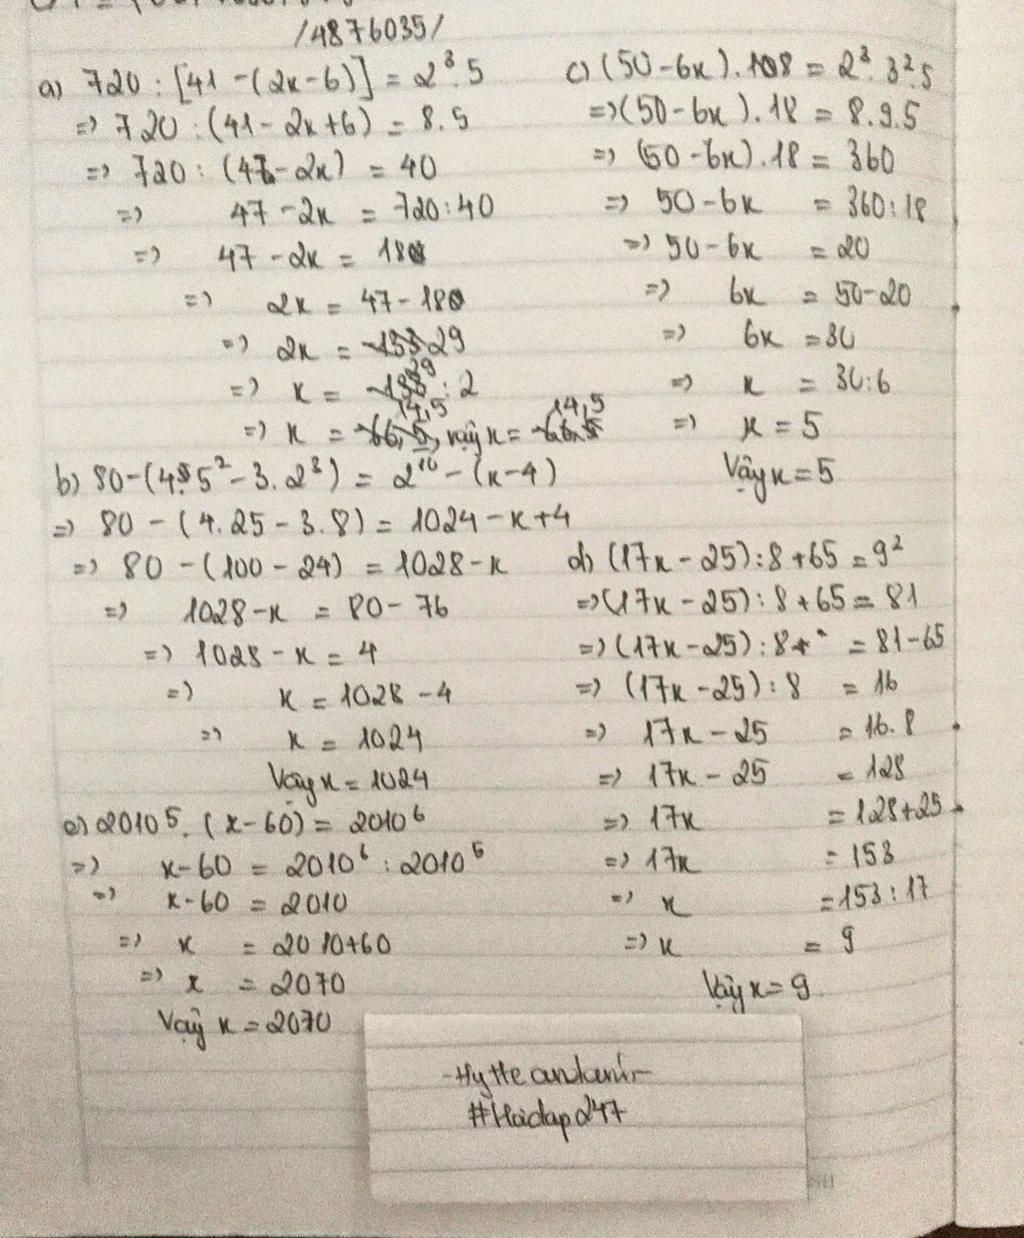 /4876035/
a) 720 : [41 - (2x - 6)] = 2³.5
=> 720 : (41 - 2x + 6) = 8.5
=> 720 : (47 - 2x) = 40
=> 47 - 2x = 720 : 40
=> 47 - 2x = 18
=> 2x = 47 - 18
=> 2x = 29
=> x = 29 : 2
=> x = 14,5, vậy x = 14,5
b) 80 - (4.5² - 3.2³) = 2¹⁰ - (x - 4)
=> 80 - (4.25 - 3.8) = 1024 - x + 4
=> 80 - (100 - 24) = 1028 - x
=> 1028 - x = 80 - 76
=> 1028 - x = 4
=> x = 1028 - 4
=> x = 1024
Vậy x = 1024
e) 2010⁵. (x - 60) = 2010⁶
=> x - 60 = 2010⁶ : 2010⁵
=> x - 60 = 2010
=> x = 2010 + 60
=> x = 2070
Vậy x = 2070
c) (50 - 6x).18 = 2³.3².5
=> (50 - 6x).18 = 8.9.5
=> (50 - 6x).18 = 360
=> 50 - 6x = 360 : 18
=> 50 - 6x = 20
=> 6x = 50 - 20
=> 6x = 30
=> x = 30 : 6
=> x = 5
Vậy x = 5
d) (17x - 25) : 8 + 65 = 9²
=> (17x - 25) : 8 + 65 = 81
=> (17x - 25) : 8 = 81 - 65
=> (17x - 25) : 8 = 16
=> 17x - 25 = 16.8
=> 17x - 25 = 128
=> 17x = 128 + 25
=> 17x = 153
=> x = 153 : 17
=> x = 9
Vậy x = 9
#Hoidap247